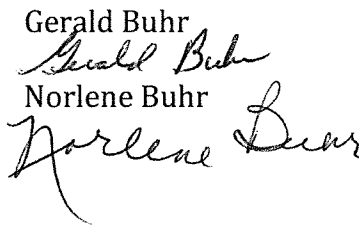 Gerald Buhr
Gerald Buhr
Norlene Buhr
Norlene Buhr